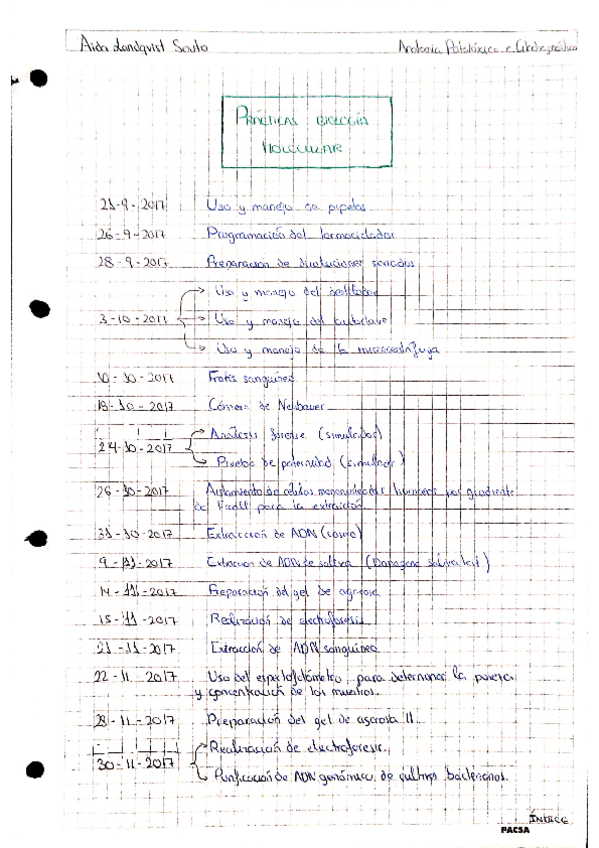 Aida Londqvist Souto Anatomía Patolóxica e Citodiagnóstico
PRÁCTICAS BIOLOGÍA
MOLECULAR
21-9-2017 Uso y manejo de pipetas
26-9-2017 Programación del termociclador
28-9-2017 Preparación de disoluciones seriadas
Uso y manejo del destilador
3-10-2017 Uso y manejo del autoclave
Uso y manejo de la microcentrífuga
10-10-2017 Frotis sanguíneo
18-10-2017 Cámara de Neubauer
Análisis forense (simulador)
24-10-2017
Pruebas de paternidad (simulador)
26-10-2017 Aislamiento de células mononucleadas humanas por gradiente
de Ficoll para la extracción
31-10-2017 Extracción de ADN (casero)
9-11-2017 Extracción de ADN de saliva (Danagene saliva kit)
14-11-2017 Preparación del gel de agarosa
15-11-2017 Realización de electroforesis
21-11-2017 Extracción de ADN sanguíneo
22-11-2017 Uso del espectofotómetro para determinar la pureza
y concentración de las muestras.
28-11-2017 Preparación del gel de agarosa II.
Realización de electroforesis.
30-11-2017
Purificación de ADN genómico de cultivos bacterianos.
ÍNDICE
PACSA